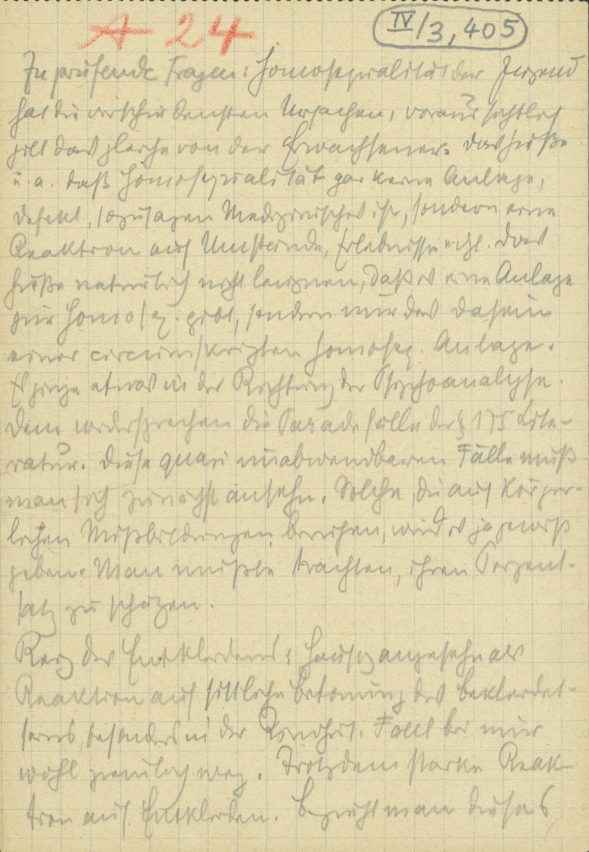 A 24
IV/3, 405
Zu prüfende Fragen: Homosexualität der Jugend
hat die verschiedensten Ursachen, voraussichtlich
gilt das gleiche von der Erwachsener. Das hieße
u. a. daß Homosexualität gar keine Anlage,
Defekt, sozusagen Medizinisches ist, sondern eine
Reaktion auf Umstände, Erlebnisse etc. Das
hieße natürlich nicht leugnen, daß es eine Anlage
zur Homosex. gibt, sondern nur das Dasein
einer circumskripten homosex. Anlage.
Es ginge etwas in der Richtung der Psychoanalyse.
Dem widersprechen die Paradefälle der § 175 Lite-
ratur. Diese quasi unabwendbaren Fälle muß
man sich zunächst ansehn. Solche, die auf körper-
lichen Mißbildungen beruhen, wird es ja gewiß
geben. Man müßte trachten, ihren Perzent-
satz zu schätzen.
Reiz des Entkleidens: Häufig angesehn als
Reaktion auf sittliche Betonung des Bekleidet-
seins, besonders in der Kindheit. Fällt bei mir
wohl ziemlich weg. Trotzdem starke Reak-
tion auf Entkleiden. Bezieht man dieses